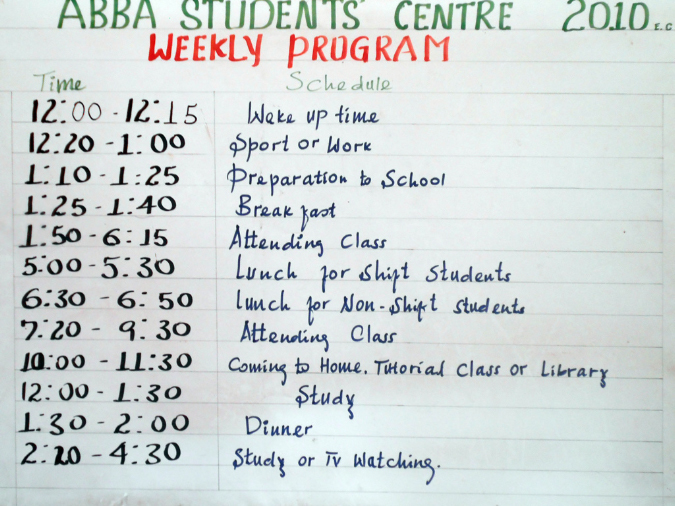 ABBA STUDENTS' CENTRE 2010 E.C
WEEKLY PROGRAM
Time Schedule
12:00 - 12:15 Wake up time
12:20 - 1:00 Sport or Work
1:10 - 1:25 Preparation to School
1:25 - 1:40 Break fast
1:50 - 6:15 Attending Class
5:00 - 5:30 Lunch for Shift Students
6:30 - 6:50 Lunch for Non-Shift students
7:20 - 9:30 Attending Class
10:00 - 11:30 Coming to Home. Tutorial Class or Library
12:00 - 1:30 Study
1:30 - 2:00 Dinner
2:20 - 4:30 Study or Tv Watching.